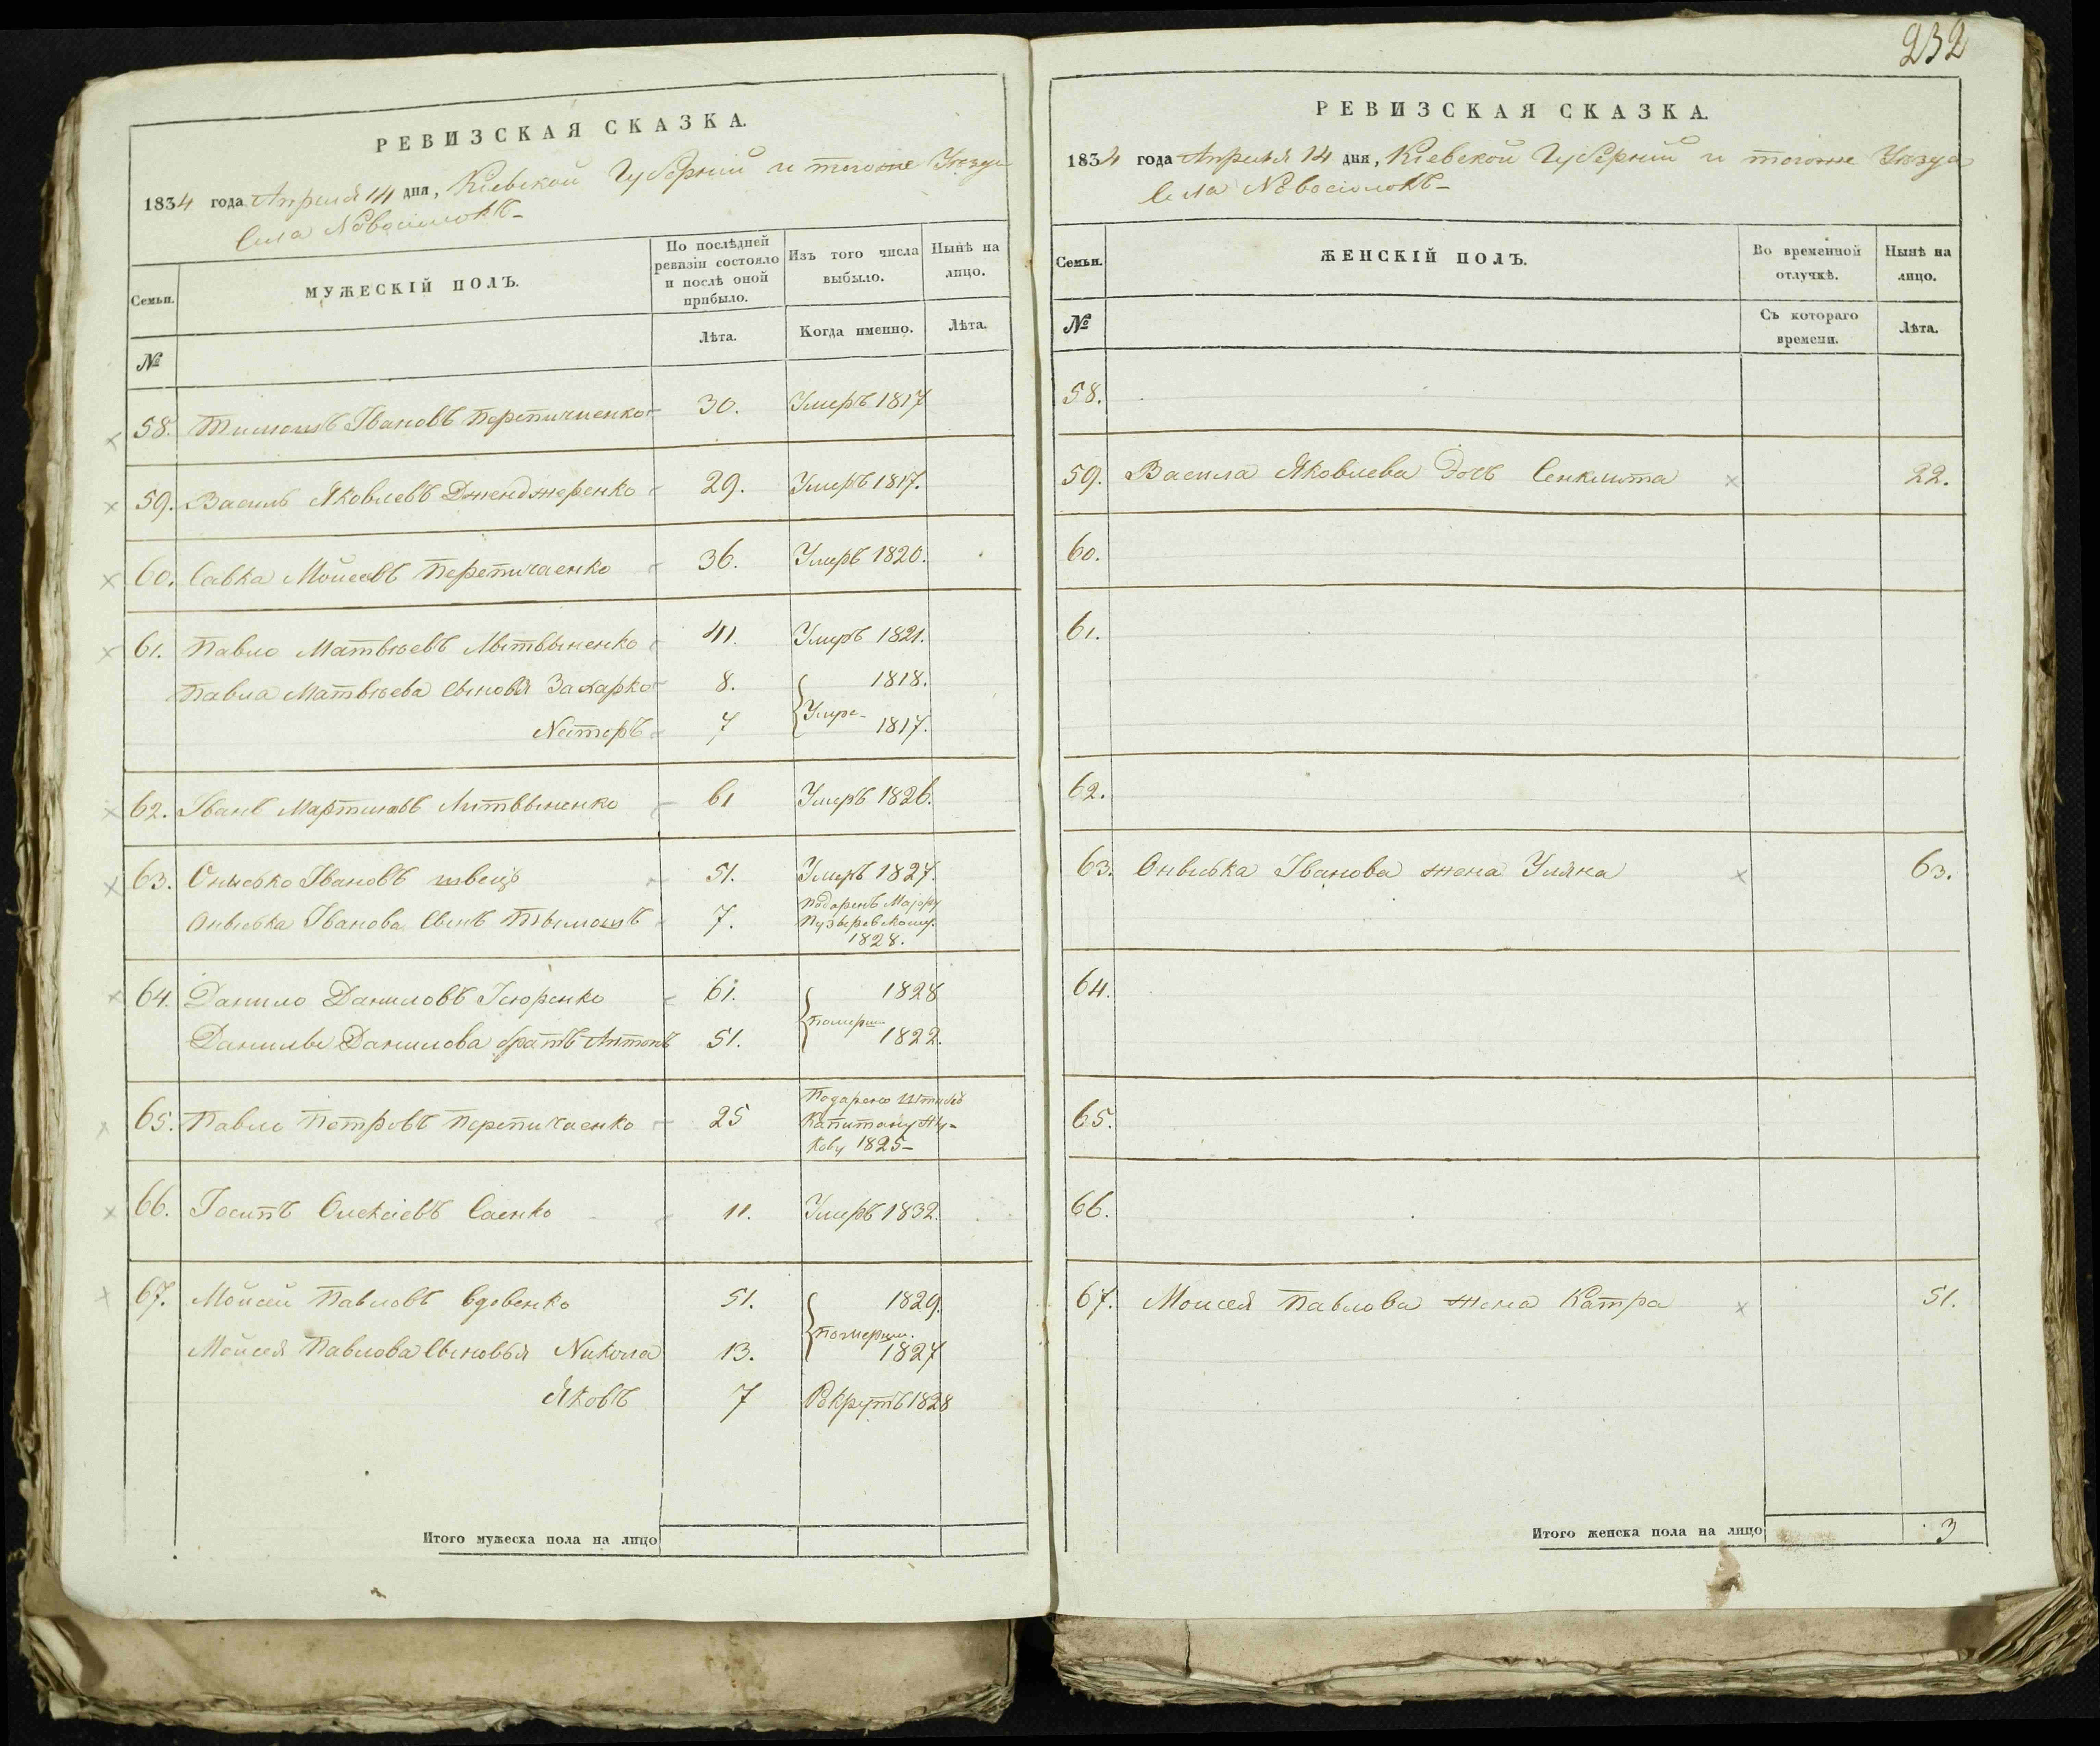 232
РЕВИЗСКАЯ СКАЗКА.
1834 года Апреля 14 дня, Кіевской Губерніи и тогоже Уезда
Села Новосіолокъ
Семьи.
МУЖЕСКІЙ ПОЛЪ.
По послѣдней ревизіи состояло и послѣ оной прибыло.
Изъ того числа выбыло.
Нынѣ на лицо.
№
Лѣта.
Когда именно.
Лѣта.
58. Тимошъ Івановъ 30. Умеръ 1817
59. Василь Яковлевъ Дженджеренко 29. Умеръ 1817.
60. Савка Мойсеевъ Перепичаенко 36. Умеръ 1820.
61. Павло Матвѣевъ Литвыненко 41. Умеръ 1821.
Павла Матвѣева сыновья Захарко 8. 1818.
Умре
Несторъ 7 1817.
62. Іванъ Мартиновъ Литвыненко 61 Умеръ 1826.
63. Онысько Івановъ швецъ 51. Умеръ 1827.
Онвиська Іванова сынъ Тымошъ 7. Подаренъ Маjору
1828.
64. Данило Даниловъ 61. 1828
померли
Данилы Данилова братъ Антонъ 51. 1822.
65. Павло Петровъ Перепичаенко 25 Подаренъ Штабсъ
Капитану
кову 1825
66. Іосипъ Олексіевъ Саенко 11. Умеръ 1832.
67. Мойсей Павловъ Вдовенко 51. 1829.
померли.
Мойсея Павлова сыновья Никола 13. 1827
Яковъ 7 Рекрутъ 1828
Итого мужеска пола на лицо
РЕВИЗСКАЯ СКАЗКА.
1834 года Апреля 14 дня, Кіевской Губерніи и тогоже Уезда
Села Новосіолокъ
Семьи.
ЖЕНСКІЙ ПОЛЪ.
Во временной отлучкѣ.
Нынѣ на лицо.
№
Съ котораго времени.
Лѣта.
58.
59. Васила Яковлева дочь Сенклита 22.
60.
61.
62.
63. Онвиська Іванова жена Уляна 63.
64.
65.
66.
67. Моисея Павлова жена Катра 51.
Итого женска пола на лицо 3